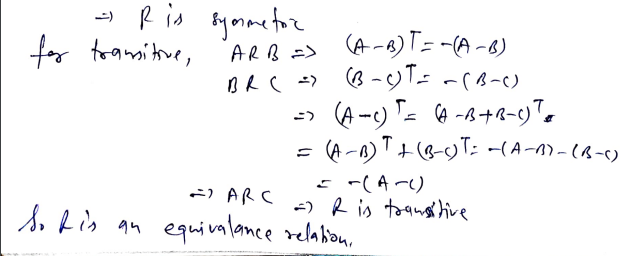 => R is symmetric
for transitive, ARB => (A-B)T = -(A-B)
BRC => (B-C)T = -(B-C)
=> (A-C)T = (A-B+B-C)T
= (A-B)T + (B-C)T = -(A-B)-(B-C)
= -(A-C)
=> ARC => R is transitive
So R is an equivalance relation.